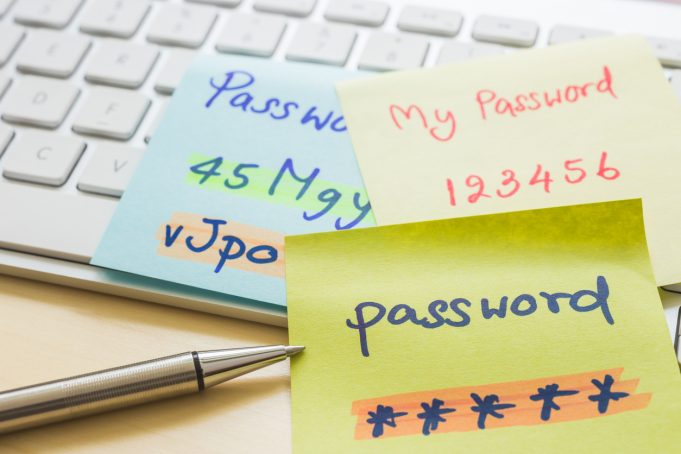 Passwo
45 Mgy
vJpo
My Password
123456
password
*****
D
F
C
V